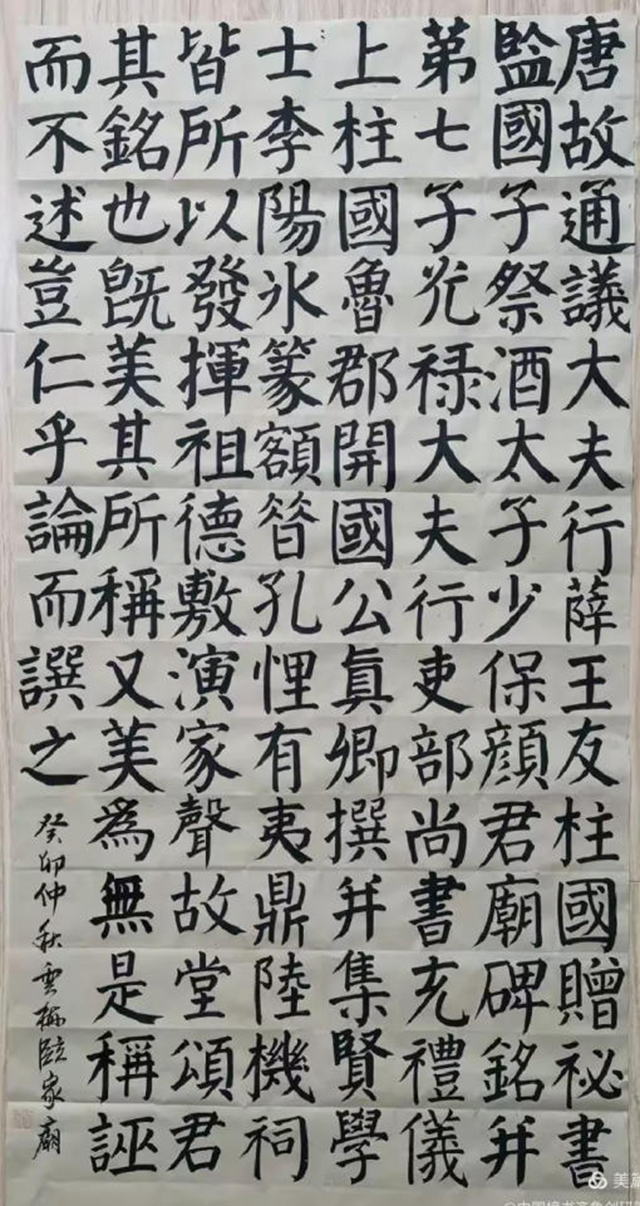 唐故通議大夫行薛王友柱國贈祕書
監國子祭酒太子少保顏君廟碑銘并
第七子光禄大夫行吏部尚書充禮儀
上柱國魯郡開國公真卿撰并集賢學
士李陽氷篆額晉孔悝有夷鼎陸機祠
皆所以發揮祖德敷演家聲故堂頌君
其銘也既美其所稱又美為無是稱誣
而不述豈仁乎論而譔之
癸卯仲秋雲臨家廟
美篇